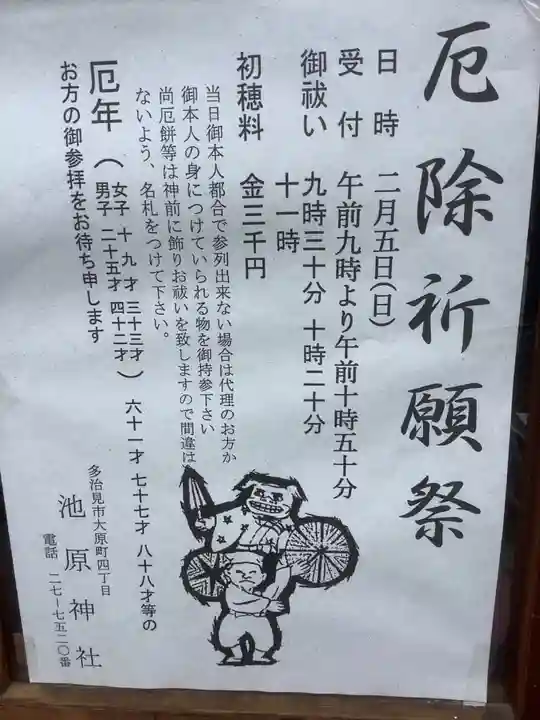 厄除祈願祭
日時 二月五日(日)
受付 午前九時より午前十時五十分
御祓い 九時三十分 十時二十分
十一時
初穂料 金三千円
当日御本人都合で参列出来ない場合は代理のお方か
御本人の身につけていられる物を御持参下さい
尚厄餅等は神前に飾りお祓いを致しますので間違は
ないよう、名札をつけて下さい。
厄年 (女子 十九才 三十三才
男子 二十五才 四十二才) 六十一才 七十七才 八十八才等の
お方の御参拝をお待ち申します
多治見市大原町四丁目
池原神社
電話 二七-七五二〇番